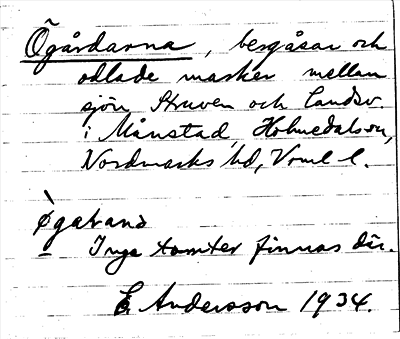 Ögårdarna, bergåsar och
odlade marker mellan
sjön Struven och landsv.
i Månstad, Holmedalson,
Nordmarks hd, Vrml l.
øgaʈana
Inga tomter finnas där.
E Andersson 1934.